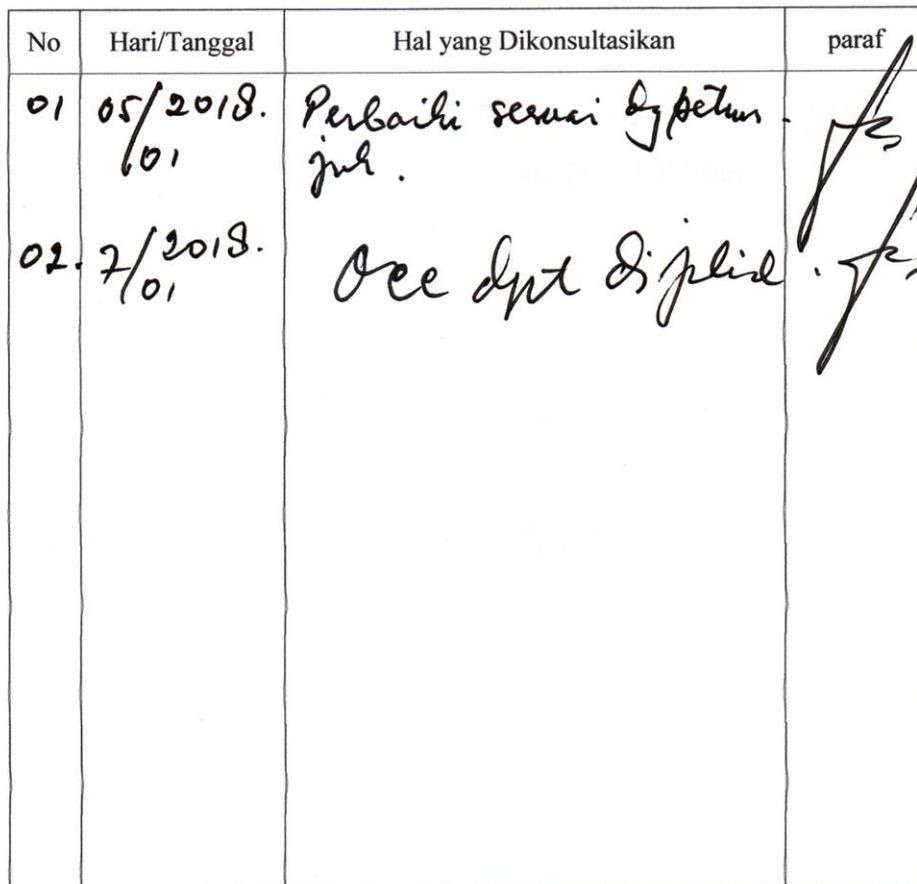 No Hari/Tanggal Hal yang Dikonsultasikan paraf
01 05/2018. Perbaiki sesuai dg petun-
01 juk.
02. 7/2018. Acc dpt dijilid.
01